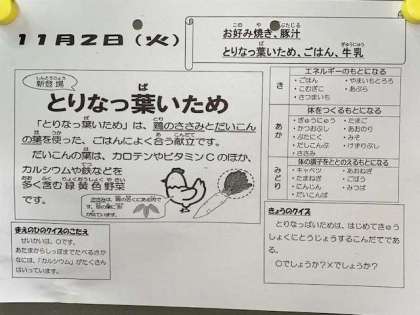 11月2日（火）
お好み焼き、豚汁
とりなっ葉いため、ごはん、牛乳
新登場
とりなっ葉いため
「とりなっ葉いため」は、鶏のささみとだいこん
の葉を使った、ごはんによく合う献立です。
だいこんの葉は、カロテンやビタミンCのほか、
カルシウムや鉄などを
多く含む緑黄色野菜
です。
まえのひのクイズのこたえ
せいかいは、○です。
あたまからしっぽまでたべるさか
なには、「カルシウム」がたくさん
はいっています。
エネルギーのもとになる
き
・ごはん ・やまいもとろろ
・こむぎこ ・あぶら
・さつまいも
体をつくるもとになる
あか
・ぎゅうにゅう ・たまご
・かつおぶし ・あおのり
・ぶたにく ・みそ
・だいこんぶ ・けずりぶし
・ささみ
体の調子をととのえるもとになる
みどり
・キャベツ ・あおねぎ
・たまねぎ ・ごぼう
・にんじん ・みつば
・だいこんば
きょうのクイズ
とりなっぱいためは、はじめてきゅう
しょくにとうじょうするこんだてであ
る。
○でしょうか？×でしょうか？